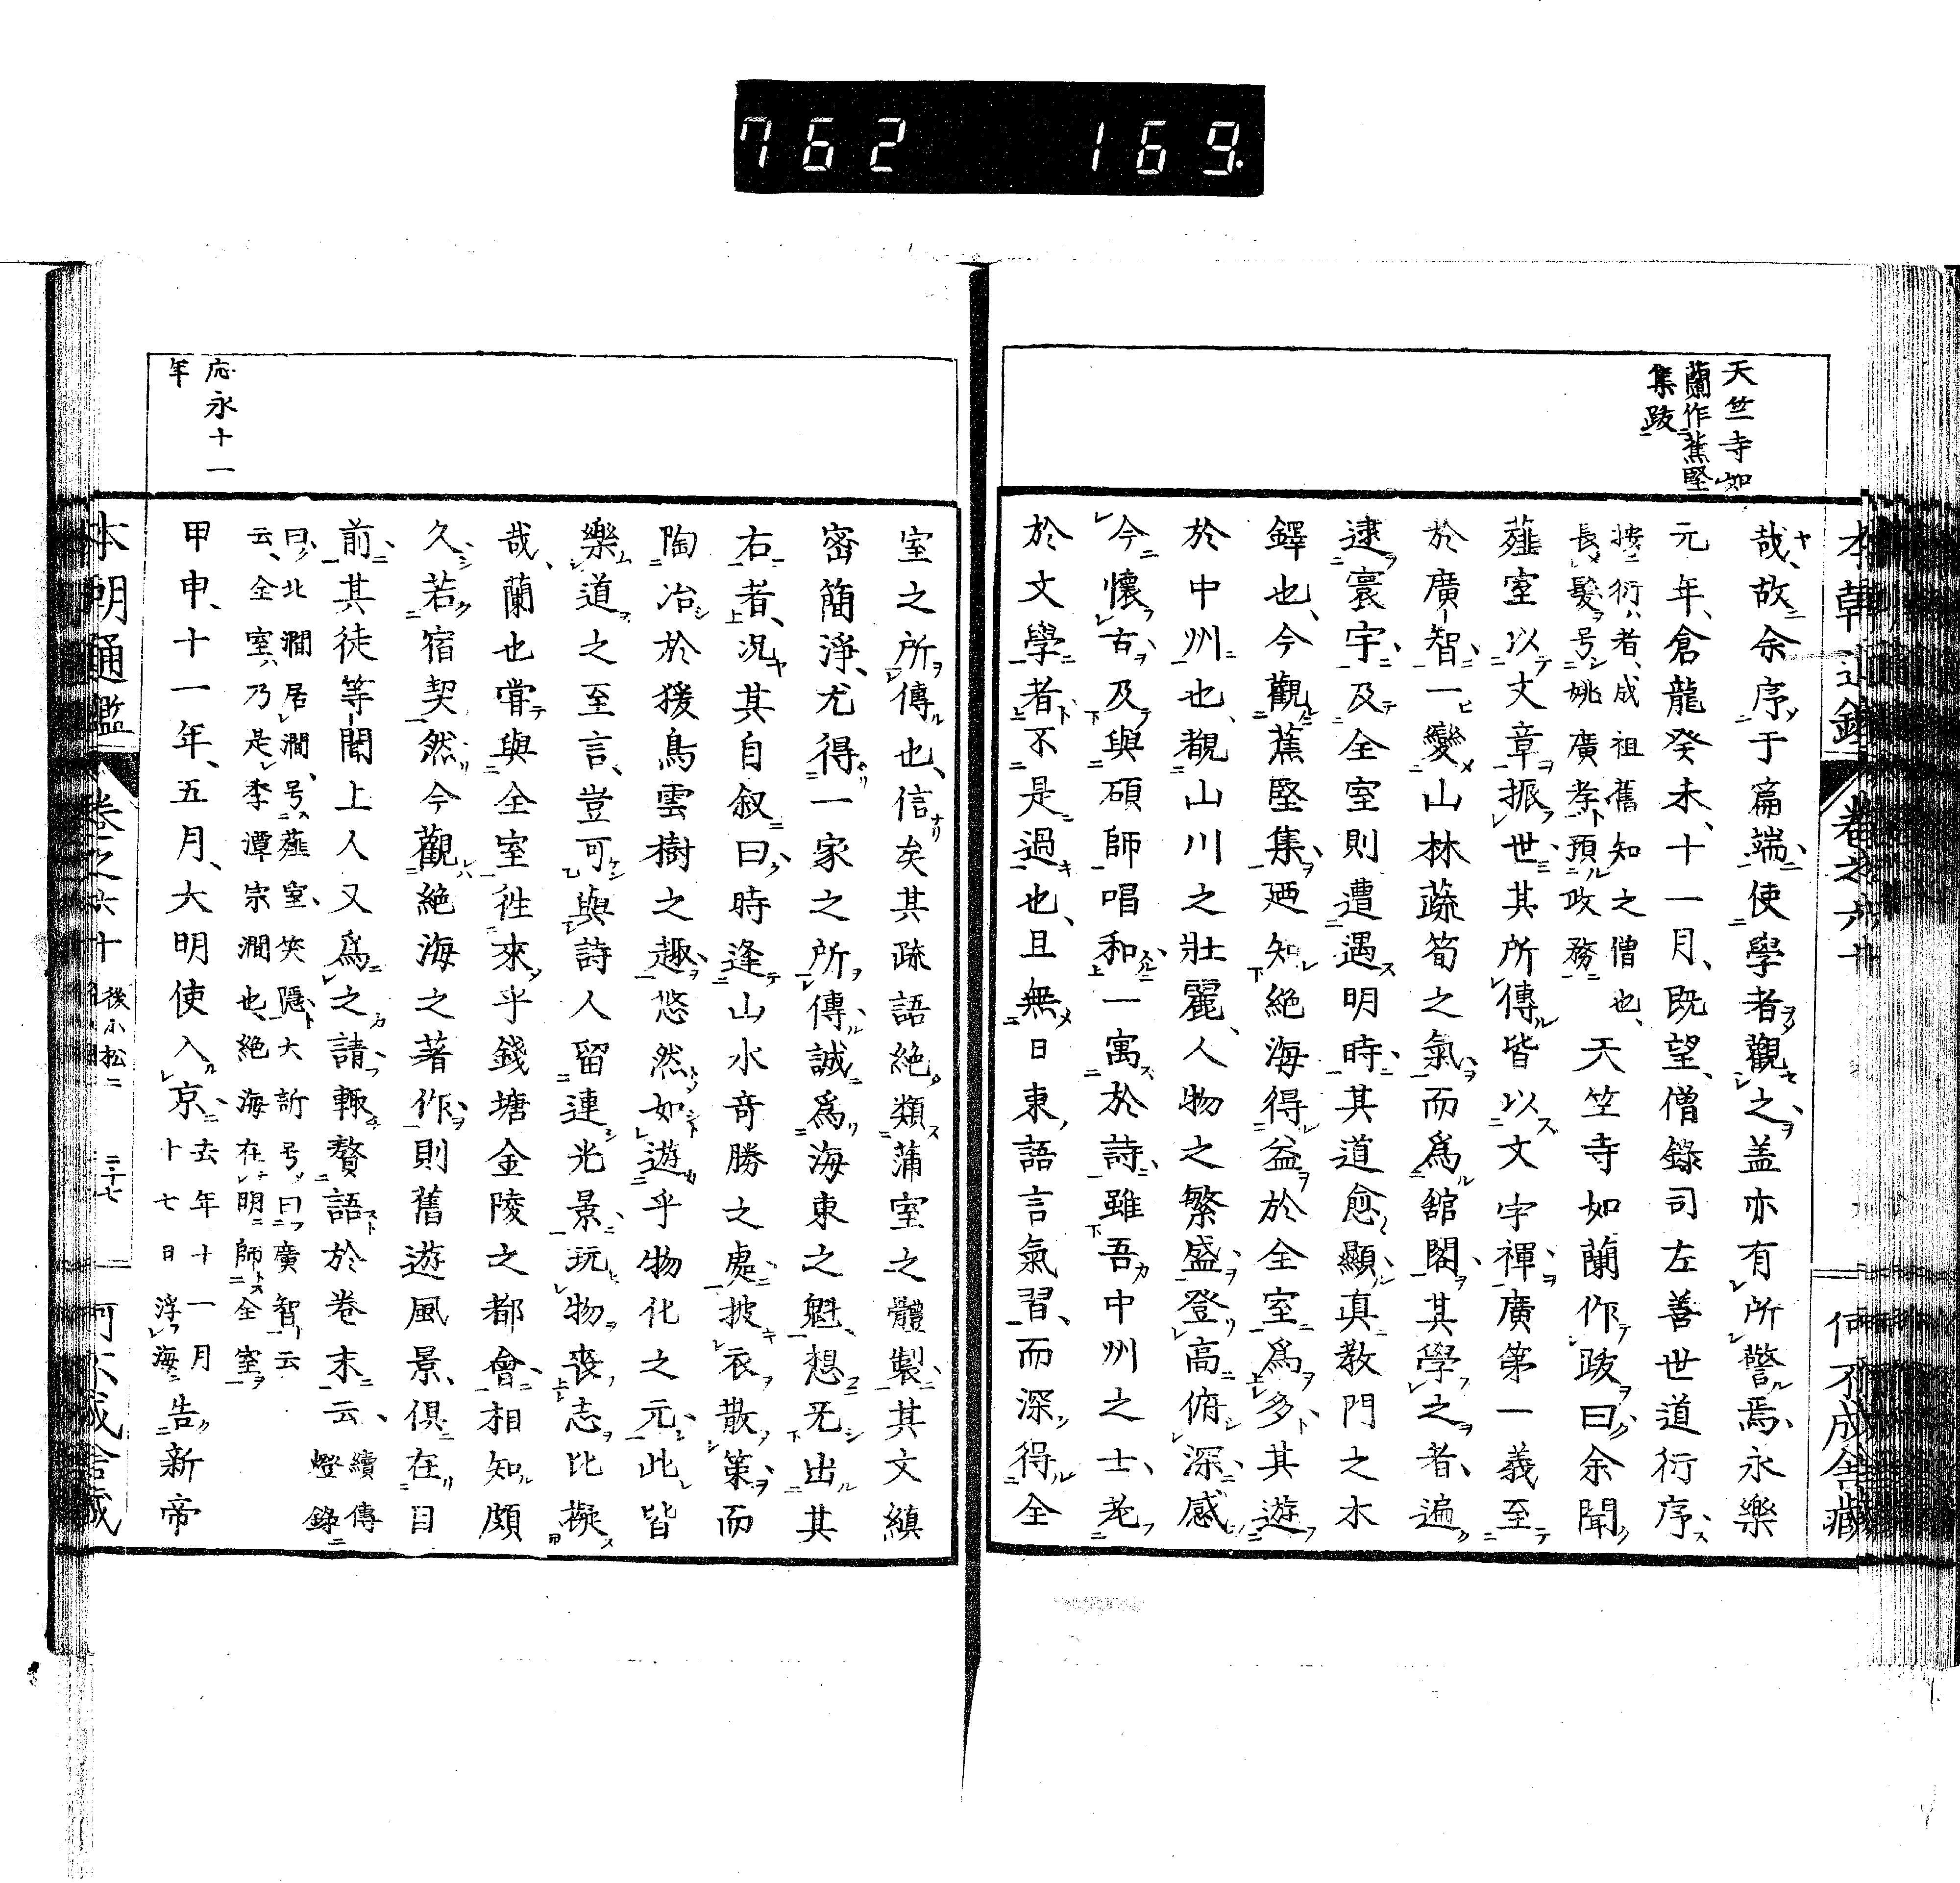 762 169
天竺寺如
蘭作蕉堅
集跋
哉、故余序于篇端、使學者觀之、盖亦有所警焉、永樂
元年、倉龍癸未、十一月、既望、僧錄司左善世道衍序、
按衍者、成祖舊知之僧也、
長髮号姚廣孝預政務
天竺寺如蘭作跋曰、余聞
蕹室以文章振世、其所傳皆以文字禪、廣第一義至
於廣智一變山林蔬筍之氣、而爲舘閣、其學之者、遍
逮寰宇、及全室則遭遇明時、其道愈顯、真教門之木
鐸也、今觀蕉堅集、廼知絶海得益於全室爲多、其遊
於中州也、覩山川之壯麗、人物之繁盛、登高俯深、感
今懷古、及與碩師唱和、一寓於詩、雖吾中州之士、老
於文學者、不是過也、且無日東語言氣習、而深得全
室之所傳也、信矣其疏語絶類蒲室之體製、其文縝
密簡淨、尤得一家之所傳、誠爲海東之魁、想无出其
右者、况其自叙曰、時逢山水奇勝之處、披衣散策、而
陶冶於猨鳥雲樹之趣、悠然如遊乎物化之元、此皆
樂道之至言、豈可與詩人留連光景、玩物喪志比擬
哉、蘭也嘗與全室徃來乎錢塘金陵之都會、相知頗
久、若宿契然、今觀絶海之著作、則舊遊風景、俱在目
前、其徒等聞上人又爲之請、輙贅語於卷末云、
續傳
燈錄
曰北澗居澗、号蕹室、笑隱大訢号曰廣智云
云、全室乃是季潭宗澗也、絶海在明師全室
甲申、十一年、五月、大明使入京、
去年十一月
十七日浮海
告新帝
応永十一
年
本朝通鑑 卷之六十 後小松二 二十七